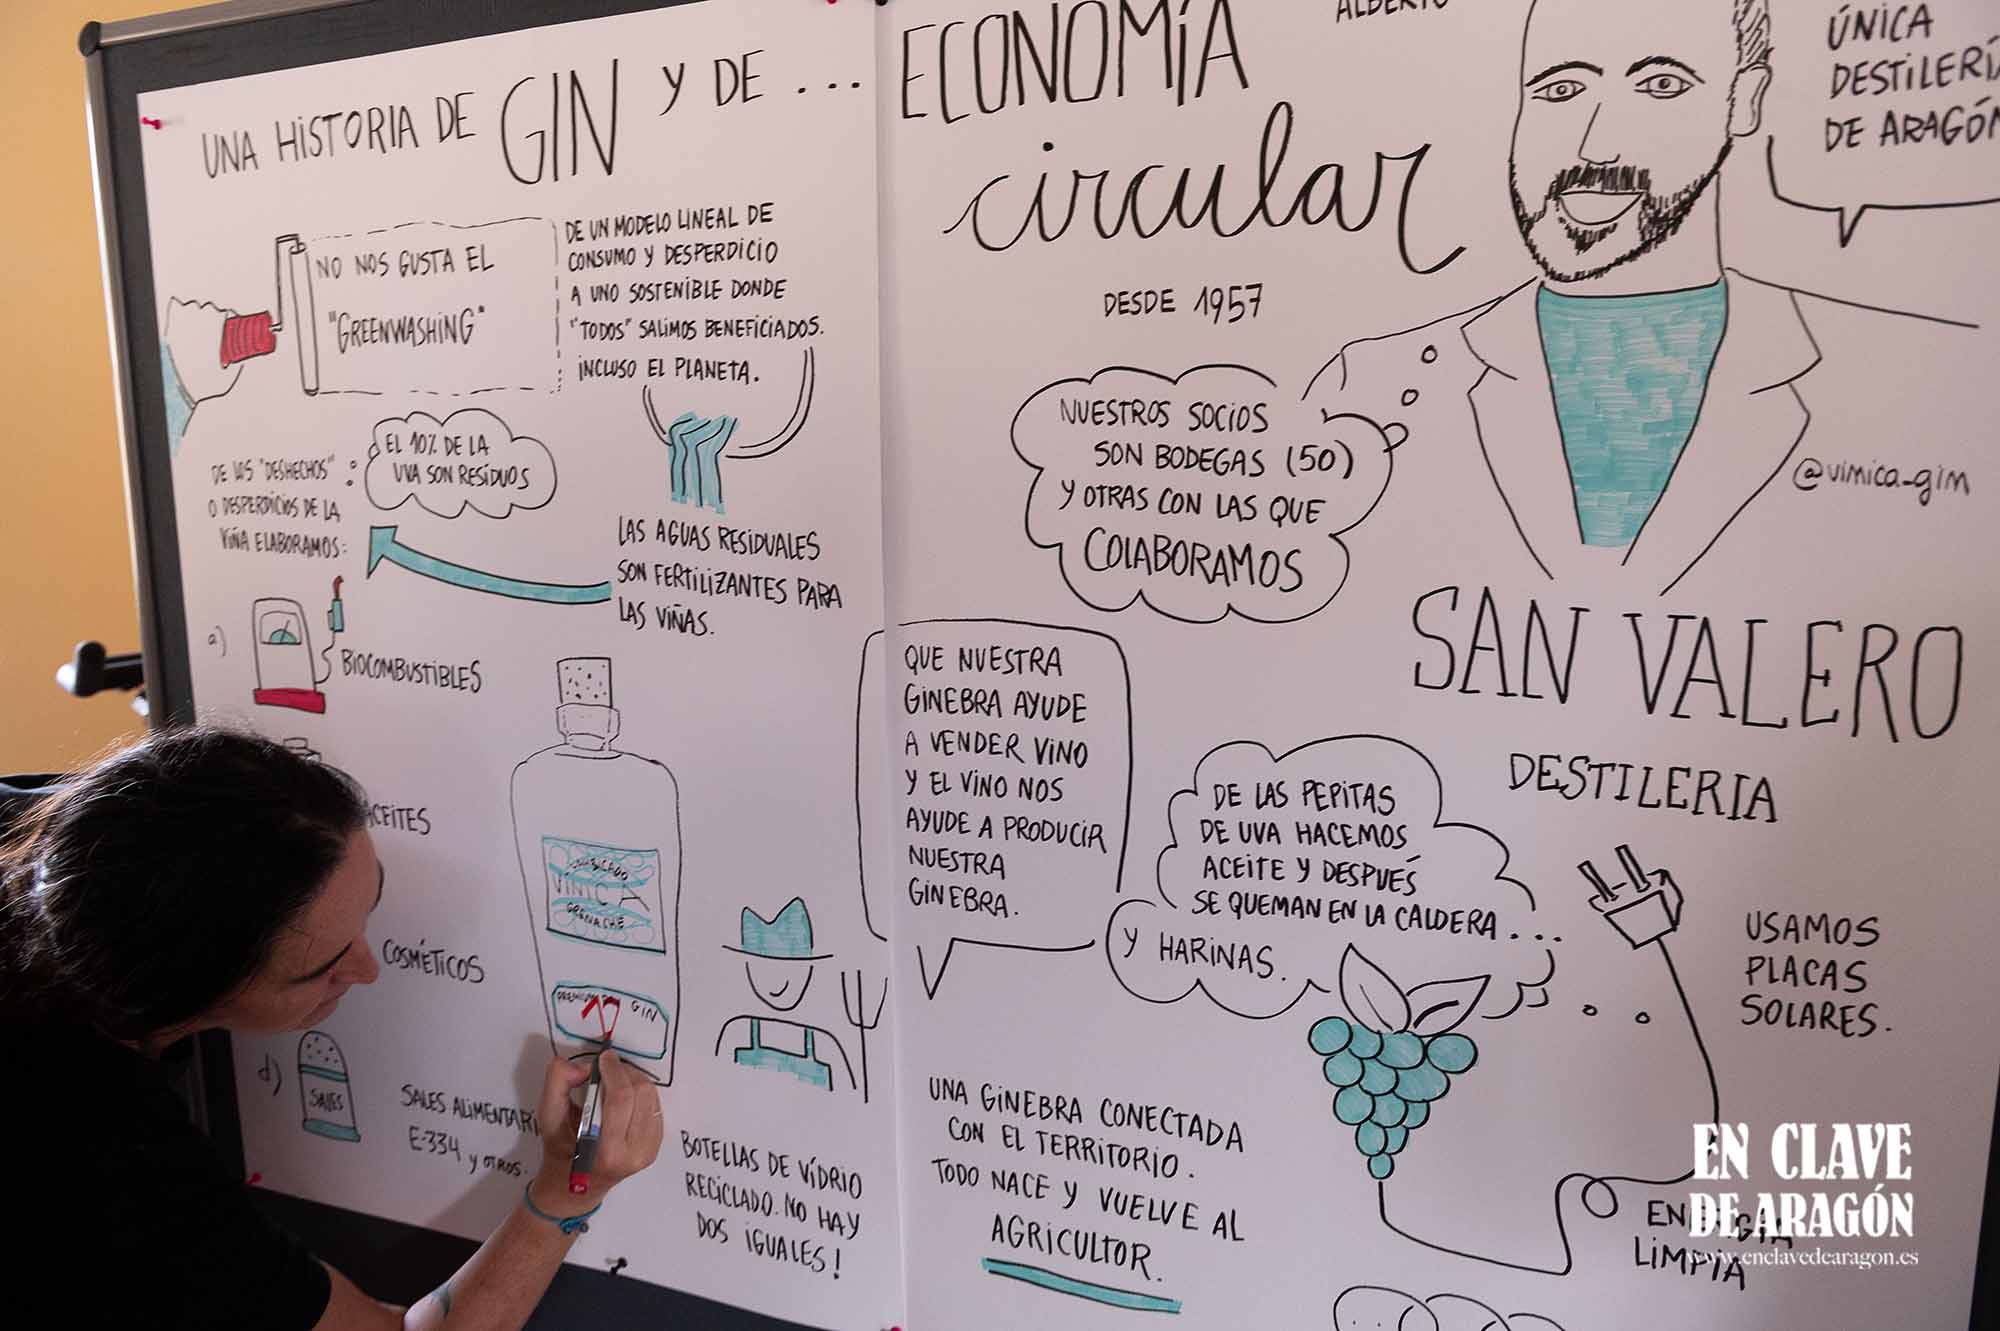 UNA HISTORIA DE GIN Y DE ...
ECONOMÍA
circular
DESDE 1957
ÚNICA
DESTILERÍA
DE ARAGÓN
NO NOS GUSTA EL
"GREENWASHING"
DE UN MODELO LINEAL DE
CONSUMO Y DESPERDICIO
A UNO SOSTENIBLE DONDE
"TODOS" SALIMOS BENEFICIADOS.
INCLUSO EL PLANETA.
DE LOS "DESHECHOS"
O DESPERDICIOS DE LA
VIÑA ELABORAMOS:
EL 10% DE LA
UVA SON RESÍDUOS
LAS AGUAS RESIDUALES
SON FERTILIZANTES PARA
LAS VIÑAS.
a)
BIOCOMBUSTIBLES
ACEITES
COSMÉTICOS
d)
SALES
SALES ALIMENTARI
E-334 y OTROS.
VÍNICA
GRENACHE
PREMIUM
GIN
BOTELLAS DE VÍDRIO
RECICLADO. NO HAY
DOS IGUALES!
NUESTROS SOCIOS
SON BODEGAS (50)
Y OTRAS CON LAS QUE
COLABORAMOS
@vinica_gin
SAN VALERO
DESTILERIA
QUE NUESTRA
GINEBRA AYUDE
A VENDER VINO
Y EL VINO NOS
AYUDE A PRODUCIR
NUESTRA
GINEBRA.
DE LAS PEPITAS
DE UVA HACEMOS
ACEITE Y DESPUÉS
SE QUEMAN EN LA CALDERA...
Y HARINAS.
USAMOS
PLACAS
SOLARES.
UNA GINEBRA CONECTADA
CON EL TERRITORIO.
TODO NACE Y VUELVE AL
AGRICULTOR.
ENERGÍA
LIMPIA
EN CLAVE
DE ARAGÓN
www.enclavedearagon.es